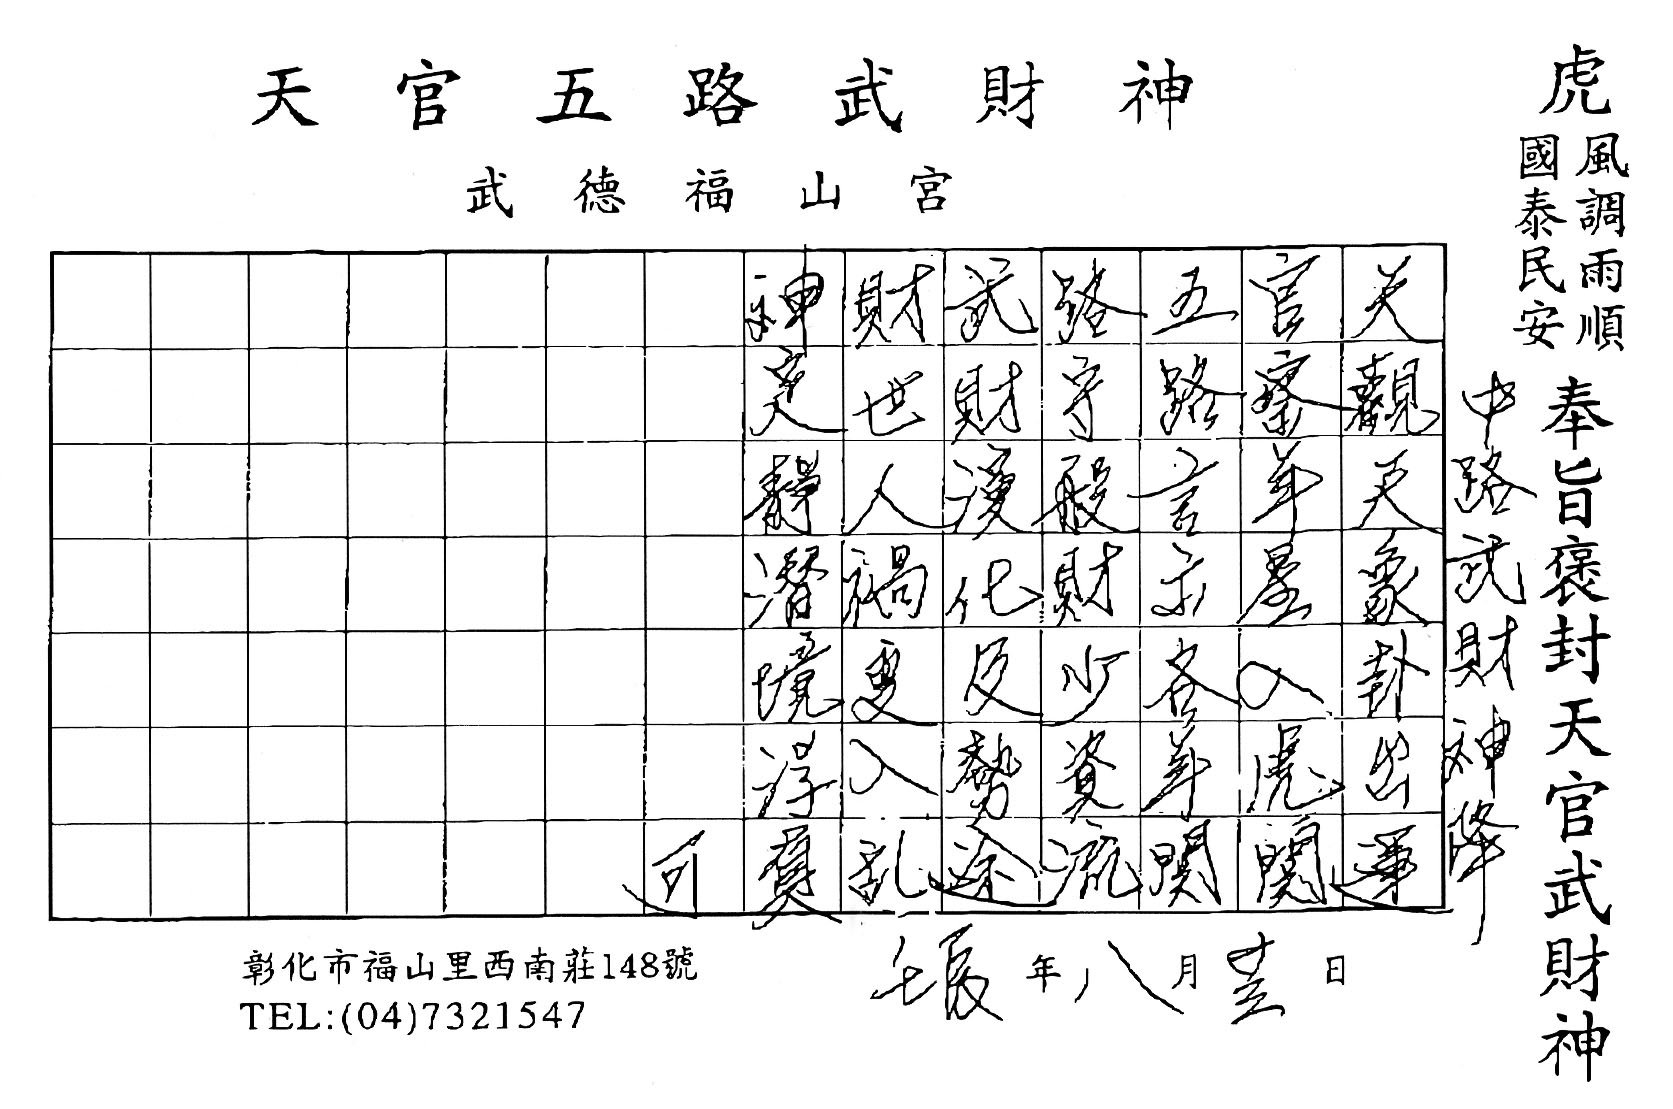 天官五路武財神
武德福山宮
虎
風調雨順
國泰民安
奉旨褒封天官武財神
中路武財神降
天觀天象卦出運
官察年星入虎關
五路言示各年關
路守般財少資流
武財漫化反勢途
財世人禍更入乱
神定靜潛境
可
壬辰年八月日
彰化市福山里西南莊148號
TEL:(04)7321547